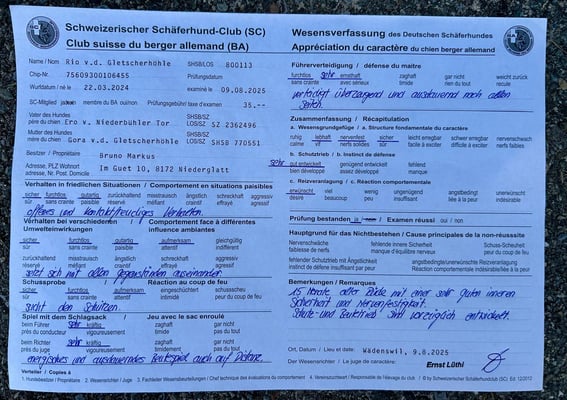 Schweizerischer Schäferhund-Club (SC)
Club suisse du berger allemand (BA)
Wesensverfassung des Deutschen Schäferhundes
Appréciation du caractère du chien berger allemand
Name / Nom Rio v.d. Gletscherhöhle SHSB/LOS 800113
Chip-Nr. 75609300106455 Prüfungsdatum
Wurfdatum / né le 22.03.2024 examiné le 09.08.2025
SC-Mitglied ja/nein membre du BA oui/non Prüfungsgebühr/ taxe d'examen 35.--
Vater des Hundes SHSB/
Père du chien Ero v. Niederbühler Tor LOS/SZ SZ 2362496
Mutter des Hundes SHSB/
Mère du chien Gora v.d. Gletscherhöhle LOS/SZ SHSB 770551
Besitzer / Propriétaire Bruno Markus
Adresse, PLZ Wohnort Im Guet 10, 8172 Niederglatt
Adresse, No. Post. Domicile
Verhalten in friedlichen Situationen / Comportement en situations paisibles
sicher furchtlos gutartig zurückhaltend misstrauisch ängstlich schreckhaft aggressiv
sûr sans crainte paisible réservé méfiant craintif effrayé agressif
offenes und kontaktfreudiges Verhalten.
Verhalten bei verschiedenen / Comportement face à différentes
Umwelteinwirkungen influence ambiantes
sicher furchtlos gutartig aufmerksam gleichgültig
sûr sans crainte paisible attentif indifférent
zurückhaltend misstrauisch ängstlich schreckhaft aggressiv
réservé méfiant craintif effrayé agressif
setzt sich mit allen Gegenständen auseinander.
Schussprobe Réaction au coup de feu
sicher furchtlos aufmerksam eingeschüchtert schussscheu
sûr sans crainte attentif intimidé peur du coup de feu
sucht den Schützen.
Spiel mit dem Schlagsack / Jeu avec le sac enroulé
beim Führer sehr kräftig zaghaft gar nicht
près du conducteur vigoureusement timide pas du tout
beim Richter sehr kräftig zaghaft gar nicht
près du juge vigoureusement timide pas du tout
energisches und ausdauerndes Beutespiel auch auf Distanz.
Verteiler / Copies à
Führerverteidigung / défense du maître
furchtlos sehr ernsthaft zaghaft gar nicht weicht zurück
sans crainte avec sérieux timide rien du tout recule
verteidigt überzeugend und ausdauernd nach allen
Seiten.
Zusammenfassung / Récapitulation
a. Wesensgrundgefüge / a. Structure fondamentale du caractère
ruhig lebhaft nervenfest sicher leicht erregbar schwer erregbar nervenschwach
calme vif nerfs solides sûr facile à exciter difficile à exciter nerfs faibles
b. Schutztrieb / b. Instinct de défense
sehr gut entwickelt genügend entwickelt fehlend
bien développé assez développé manque
c. Reizveranlagung / c. Réaction comportementale
erwünscht viel wenig ungenügend angstbedingt unerwünscht
désiré beaucoup peu insuffisant
Prüfung bestanden ja / nein / Examen réussi oui / non
Hauptgrund für das Nichtbestehen / Cause principales de la non-réussite
Nervenschwäche fehlende innere Sicherheit Schuss-Scheuheit
faiblesse de nerfs manque d'équilibre nerveux peur du coup de feu
fehlender Schutztrieb mit Ängstlichkeit angstbedingte/unerwünschte Reizveranlagung
instinct de défense insuffisant par peur Réaction comportementale indésirable/liée à la peur
Bemerkungen / Remarques
15 Monate alter Rüde mit einer sehr guten inneren
Sicherheit und Nervenfestigkeit.
Schutz- und Beutetrieb sind vorzüglich entwickelt.
Ort, Datum / Lieu et date: Wädenswil, 9.8.2025
Der Wesensrichter / Le juge de caractère: Ernst Lüthi